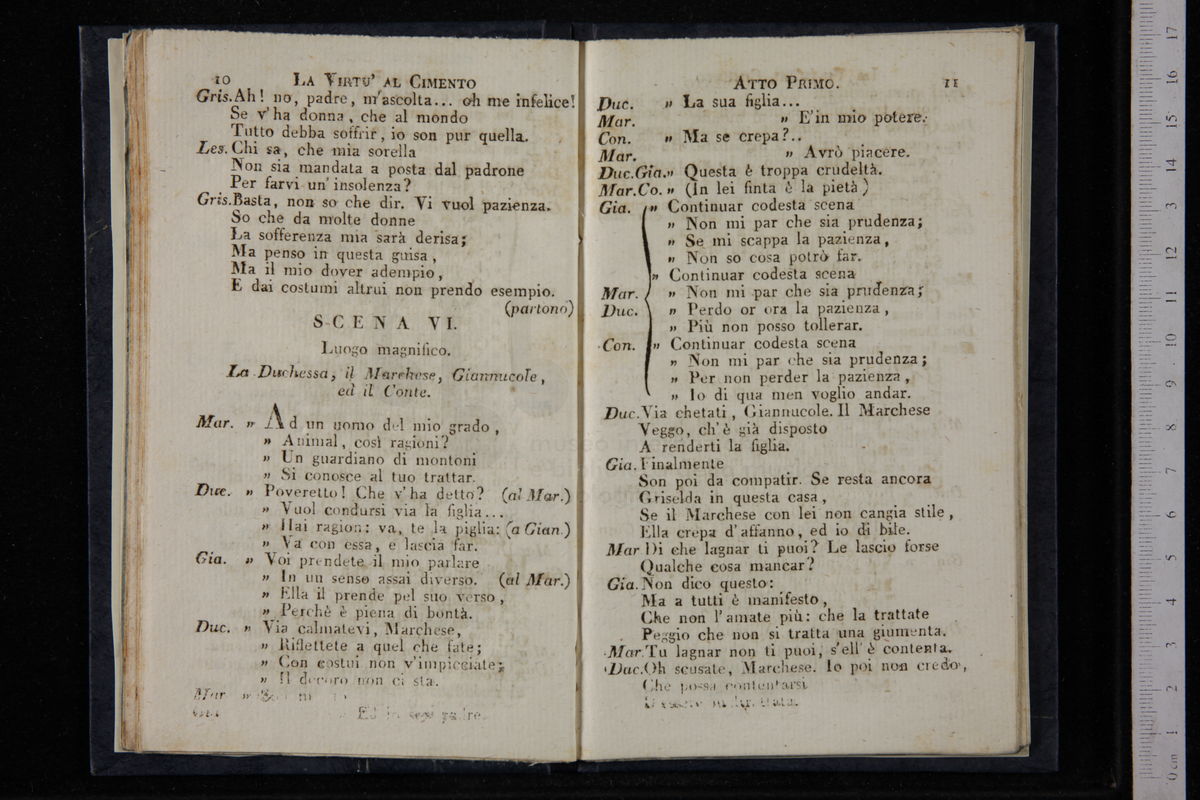 10 LA VIRTU' AL CIMENTO
Gris. Ah! no, padre, m'ascolta... oh me infelice!
Se v'ha donna, che al mondo
Tutto debba soffrir, io son pur quella.
Les. Chi sa, che mia sorella
Non sia mandata a posta dal padrone
Per farvi un' insolenza?
Gris. Basta, non so che dir. Vi vuol pazienza.
So che da molte donne
La sofferenza mia sarà derisa;
Ma penso in questa guisa,
Ma il mio dover adempio,
E dai costumi altrui non prendo esempio.
(partono)
SCENA VI.
Luogo magnifico.
La Duchessa, il Marchese, Giannucole,
ed il Conte.
Mar. " Ad un uomo del mio grado,
" Animal, così ragioni?
" Un guardiano di montoni
" Si conosce al tuo trattar.
Duc. " Poveretto! Che v'ha detto? (al Mar.)
" Vuol condursi via la figlia...
" Hai ragion: va, te la piglia: (a Gian.)
" Va con essa, e lascia far.
Gia. " Voi prendete il mio parlare
" In un senso assai diverso. (al Mar.)
" Ella il prende pel suo verso,
" Perchè è piena di bontà.
Duc. " Via calmatevi, Marchese,
" Riflettete a quel che fate;
" Con costui non v'impicciate;
" Il decoro non ci sta.
Mar "
Ed io padre.
ATTO PRIMO. 11
Duc. " La sua figlia...
Mar. " E' in mio potere.
Con. " Ma se crepa?..
Mar. " Avrò piacere.
Duc.Gia. " Questa è troppa crudeltà.
Mar.Co. " (In lei finta è la pietà)
Gia. " Continuar codesta scena
" Non mi par che sia prudenza;
" Se mi scappa la pazienza,
" Non so cosa potrò far.
" Continuar codesta scena
Mar. " Non mi par che sia prudenza;
Duc. " Perdo or ora la pazienza,
" Più non posso tollerar.
Con. " Continuar codesta scena
" Non mi par che sia prudenza;
" Per non perder la pazienza,
" Io di qua men voglio andar.
Duc. Via chetati, Giannucole. Il Marchese
Veggo, ch'è già disposto
A renderti la figlia.
Gia. Finalmente
Son poi da compatir. Se resta ancora
Griselda in questa casa,
Se il Marchese con lei non cangia stile,
Ella crepa d'affanno, ed io di bile.
Mar Di che lagnar ti puoi? Le lascio forse
Qualche cosa mancar?
Gia. Non dico questo:
Ma a tutti è manifesto,
Che non l'amate più: che la trattate
Peggio che non si tratta una giumenta.
Mar. Tu lagnar non ti puoi, s'ell'è contenta.
Duc. Oh scusate, Marchese. Io poi non credo,
Che possa contentarsi